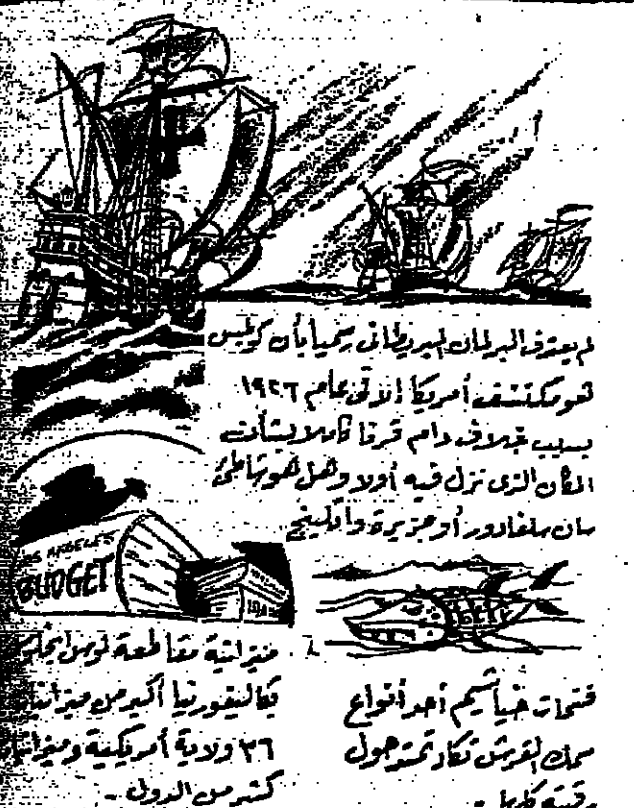 لم يعترف البرلمان البريطاني رسميا بأن كولمبس
هو مكتشف أمريكا إلا في عام ١٩٢٦
بسبب خلاف دام قرنا كاملا بشأن
المكان الذي نزل فيه أولا وهل هو شاطئ
سان سلفادور أو جزيرة واتلينج
LOS ANGELES
BUDGET
ميزانية مقاطعة لوس انجلوس
بكاليفورنيا أكبر من ميزانيات
٣٦ ولاية أمريكية وميزانيات
كثير من الدول -
فتحات خياشيم أحد أنواع
سمك القرش تكاد تمتد حول
رقبته كلها -